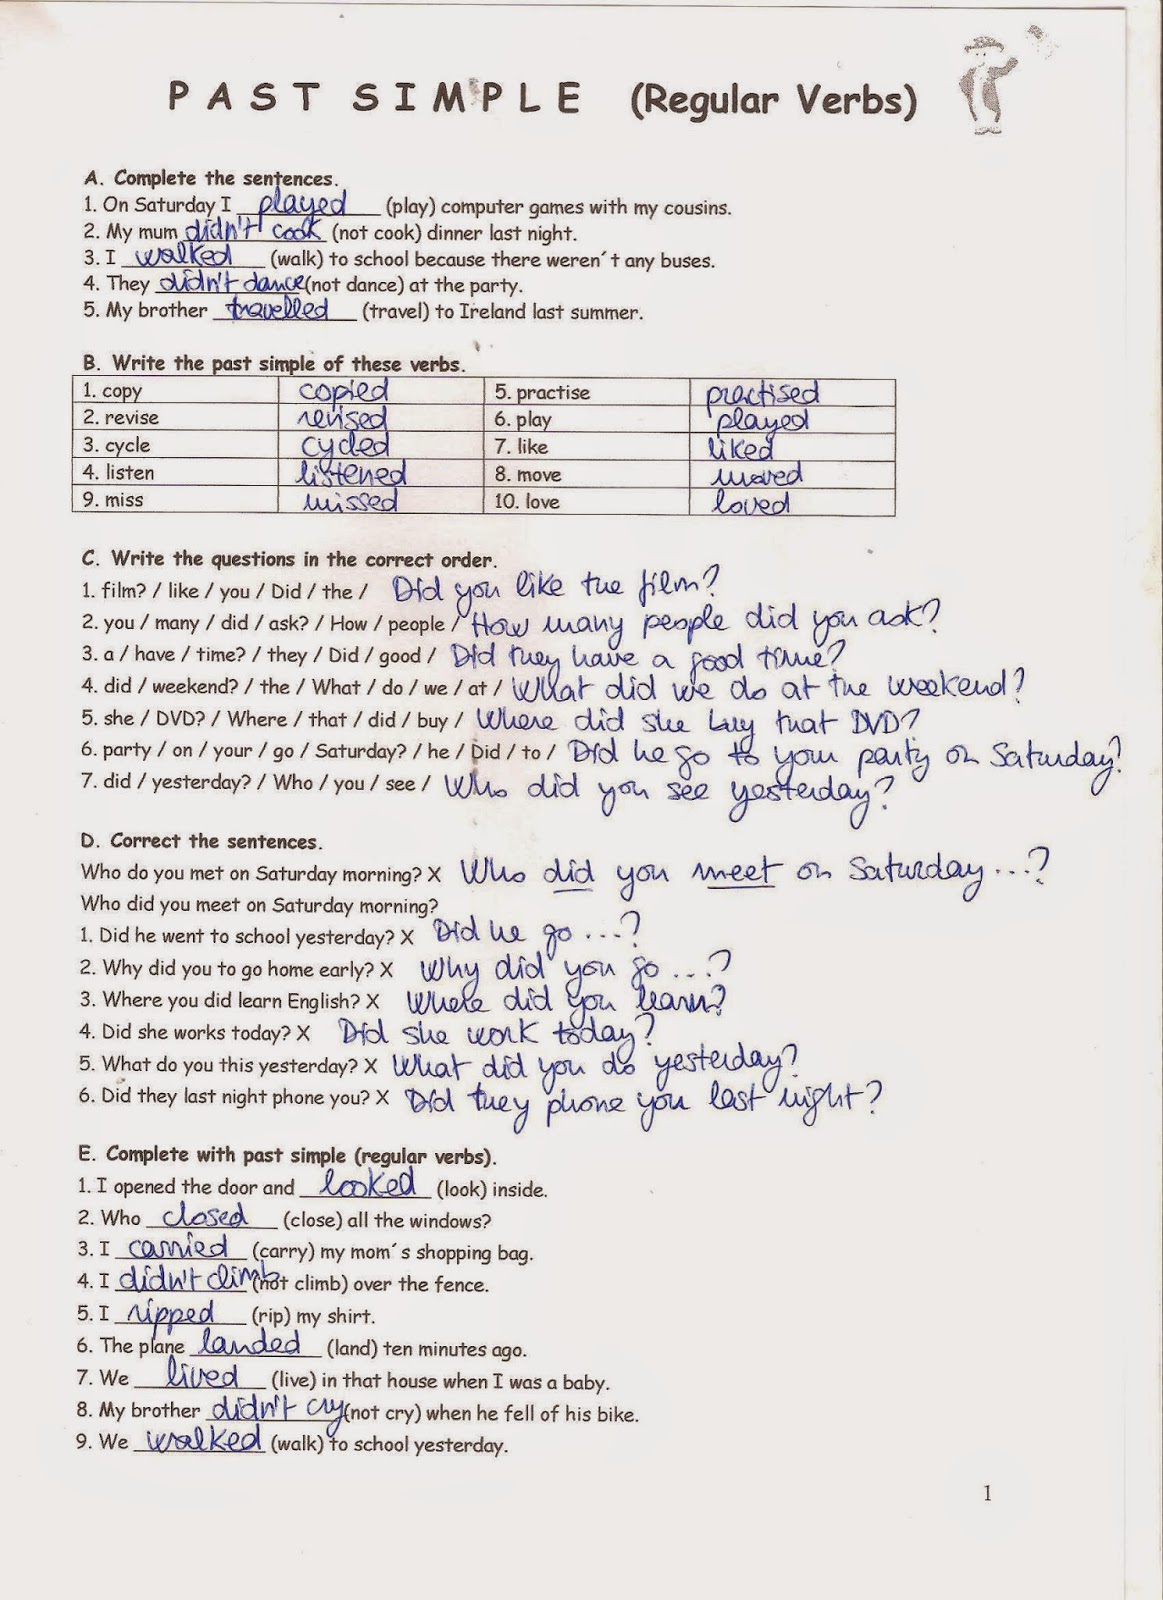 PAST SIMPLE (Regular Verbs)
A. Complete the sentences.
1. On Saturday I played (play) computer games with my cousins.
2. My mum didn't cook (not cook) dinner last night.
3. I walked (walk) to school because there weren´t any buses.
4. They didn't dance (not dance) at the party.
5. My brother travelled (travel) to Ireland last summer.
B. Write the past simple of these verbs.
1. copy copied 5. practise practised
2. revise revised 6. play played
3. cycle cycled 7. like liked
4. listen listened 8. move moved
9. miss missed 10. love loved
C. Write the questions in the correct order.
1. film? / like / you / Did / the / Did you like the film?
2. you / many / did / ask? / How / people / How many people did you ask?
3. a / have / time? / they / Did / good / Did they have a good time?
4. did / weekend? / the / What / do / we / at / What did we do at the weekend?
5. she / DVD? / Where / that / did / buy / Where did she buy that DVD?
6. party / on / your / go / Saturday? / he / Did / to / Did he go to your party on Saturday?
7. did / yesterday? / Who / you / see / Who did you see yesterday?
D. Correct the sentences.
Who do you met on Saturday morning? X Who did you meet on Saturday ...?
Who did you meet on Saturday morning?
1. Did he went to school yesterday? X Did he go ...?
2. Why did you to go home early? X Why did you go ...?
3. Where you did learn English? X Where did you learn?
4. Did she works today? X Did she work today?
5. What do you this yesterday? X What did you do yesterday?
6. Did they last night phone you? X Did they phone you last night?
E. Complete with past simple (regular verbs).
1. I opened the door and looked (look) inside.
2. Who closed (close) all the windows?
3. I carried (carry) my mom´s shopping bag.
4. I didn't climb (not climb) over the fence.
5. I ripped (rip) my shirt.
6. The plane landed (land) ten minutes ago.
7. We lived (live) in that house when I was a baby.
8. My brother didn't cry (not cry) when he fell of his bike.
9. We walked (walk) to school yesterday.
1